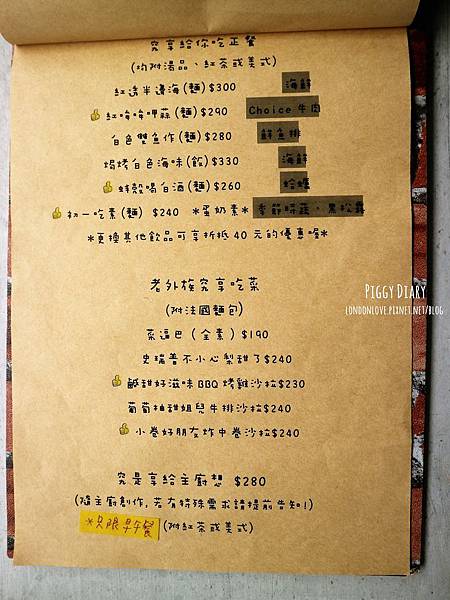 究享給你吃正餐
(均附湯品、紅茶或美式)
紅透半邊海(麵)$300 海鮮
紅哞哞呷蒜(麵)$290 Choice牛肉
白色雙魚作(麵)$280 鮮魚排
焗烤白色海味(飯)$330 海鮮
蚌殼喝白酒(麵)$260 蛤蠣
初一吃素(麵) $240 *蛋奶素* 季節時蔬、黑松露
*更換其他飲品可享折抵40元的優惠喔*
老外族究享吃菜
(附法國麵包)
菜逼巴(全素)$190
史瑞普不小心梨甜了$240
鹹甜好滋味BBQ烤雞沙拉$230
葡萄柚甜姐兒牛排沙拉$240
小卷好朋友炸中卷沙拉$240
究是享給主廚想 $280
(隨主廚創作,若有特殊需求請提前告知!)
*只限早午餐 (附紅茶或美式)
PIGGY DIARY
LONDONLOVE.PIXNET.NET/BLOG